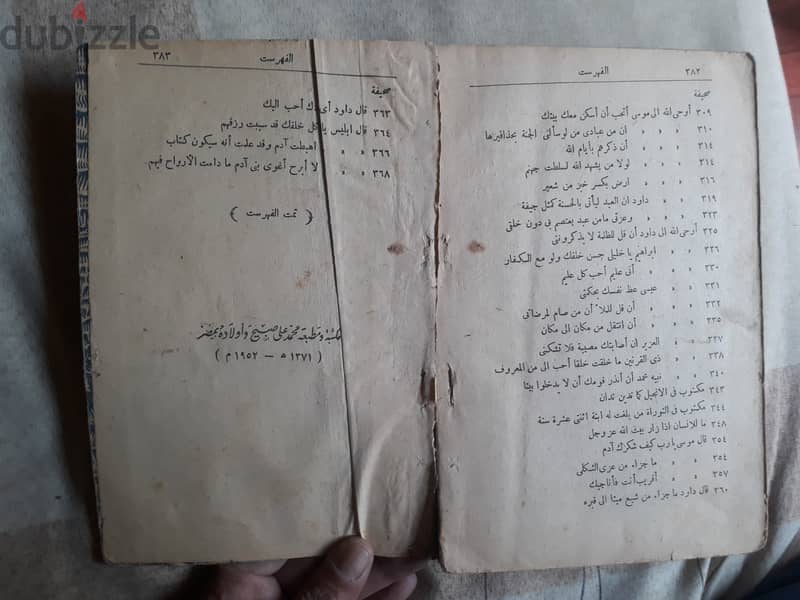 dubizzle
٣٨٢ الفهرست
صحيفة
٣٠٩ أوحى الله الى موسى أتحب أن أسكن معك بيتك
٣١٠ » » » ان من عبادى من لو سألنى الجنة بحذافيرها
٣١٤ » » » أن ذكرهم بأيام الله
٣١٤ » » » لولا من يشهد الله لسلطت جهنم
٣١٦ » » » ارض بكسر خبز من شعير
٣١٩ » » داود ان العبد ليأتى بالحسنة كمثل جيفة
٣٢٣ » » » وعزتى مامن عبد يعتصم بى دون خلقى
٣٢٥ أوحى الله الى داود أن قل للظلمة لا يذكروننى
٣٢٦ » » ابراهيم يا خليلى حسن خلقك ولو مع الكفار
٣٣٠ » » » أنى عليم أحب كل عليم
٣٣١ » » عيسى عظ نفسك بحكمتى
٣٣٢ » » » أن قل للملأ أن من صام لمرضاتى
٣٣٥ » » » أن انتقل من مكان الى مكان
٣٣٧ » » العزير ان أصابتك مصيبة فلا تشكنى
٣٣٨ » » ذى القرنين ما خلقت خلقا أحب الى من المعروف
٣٤٠ » » نبيه محمد أن أنذر قومك أن لا يدخلوا بيتا
٣٤٣ مكتوب فى الانجيل كما تدين تدان
٣٤٤ مكتوب فى التوراة من بلغت له ابنة اثنتى عشرة سنة
٣٤٨ ما للانسان اذا زار بيت الله عز وجل
٣٥٤ قال موسى يارب كيف شكرك آدم
٣٥٤ » » ما جزاء من عزى الثكلى
٣٥٧ » » أقريب أنت فأناجيك
٣٦٠ قال داود ما جزاء من شيع ميتا الى قبره
الفهرست ٣٨٣
صحيفة
٣٦٣ قال داود أى ك أحب اليك
٣٦٤ قال ابليس يا كل خلقك قد سببت رزقهم
٣٦٦ » » اهبطت آدم وقد علمت أنه سيكون كتاب
٣٦٨ » » لا أبرح أغوى بنى آدم ما دامت الأرواح فيهم
( تمت الفهرست )
مكتبة ومطبعة محمد على صبيح وأولاده بمصر
( ١٣٧١ ه – ١٩٥٢ م )